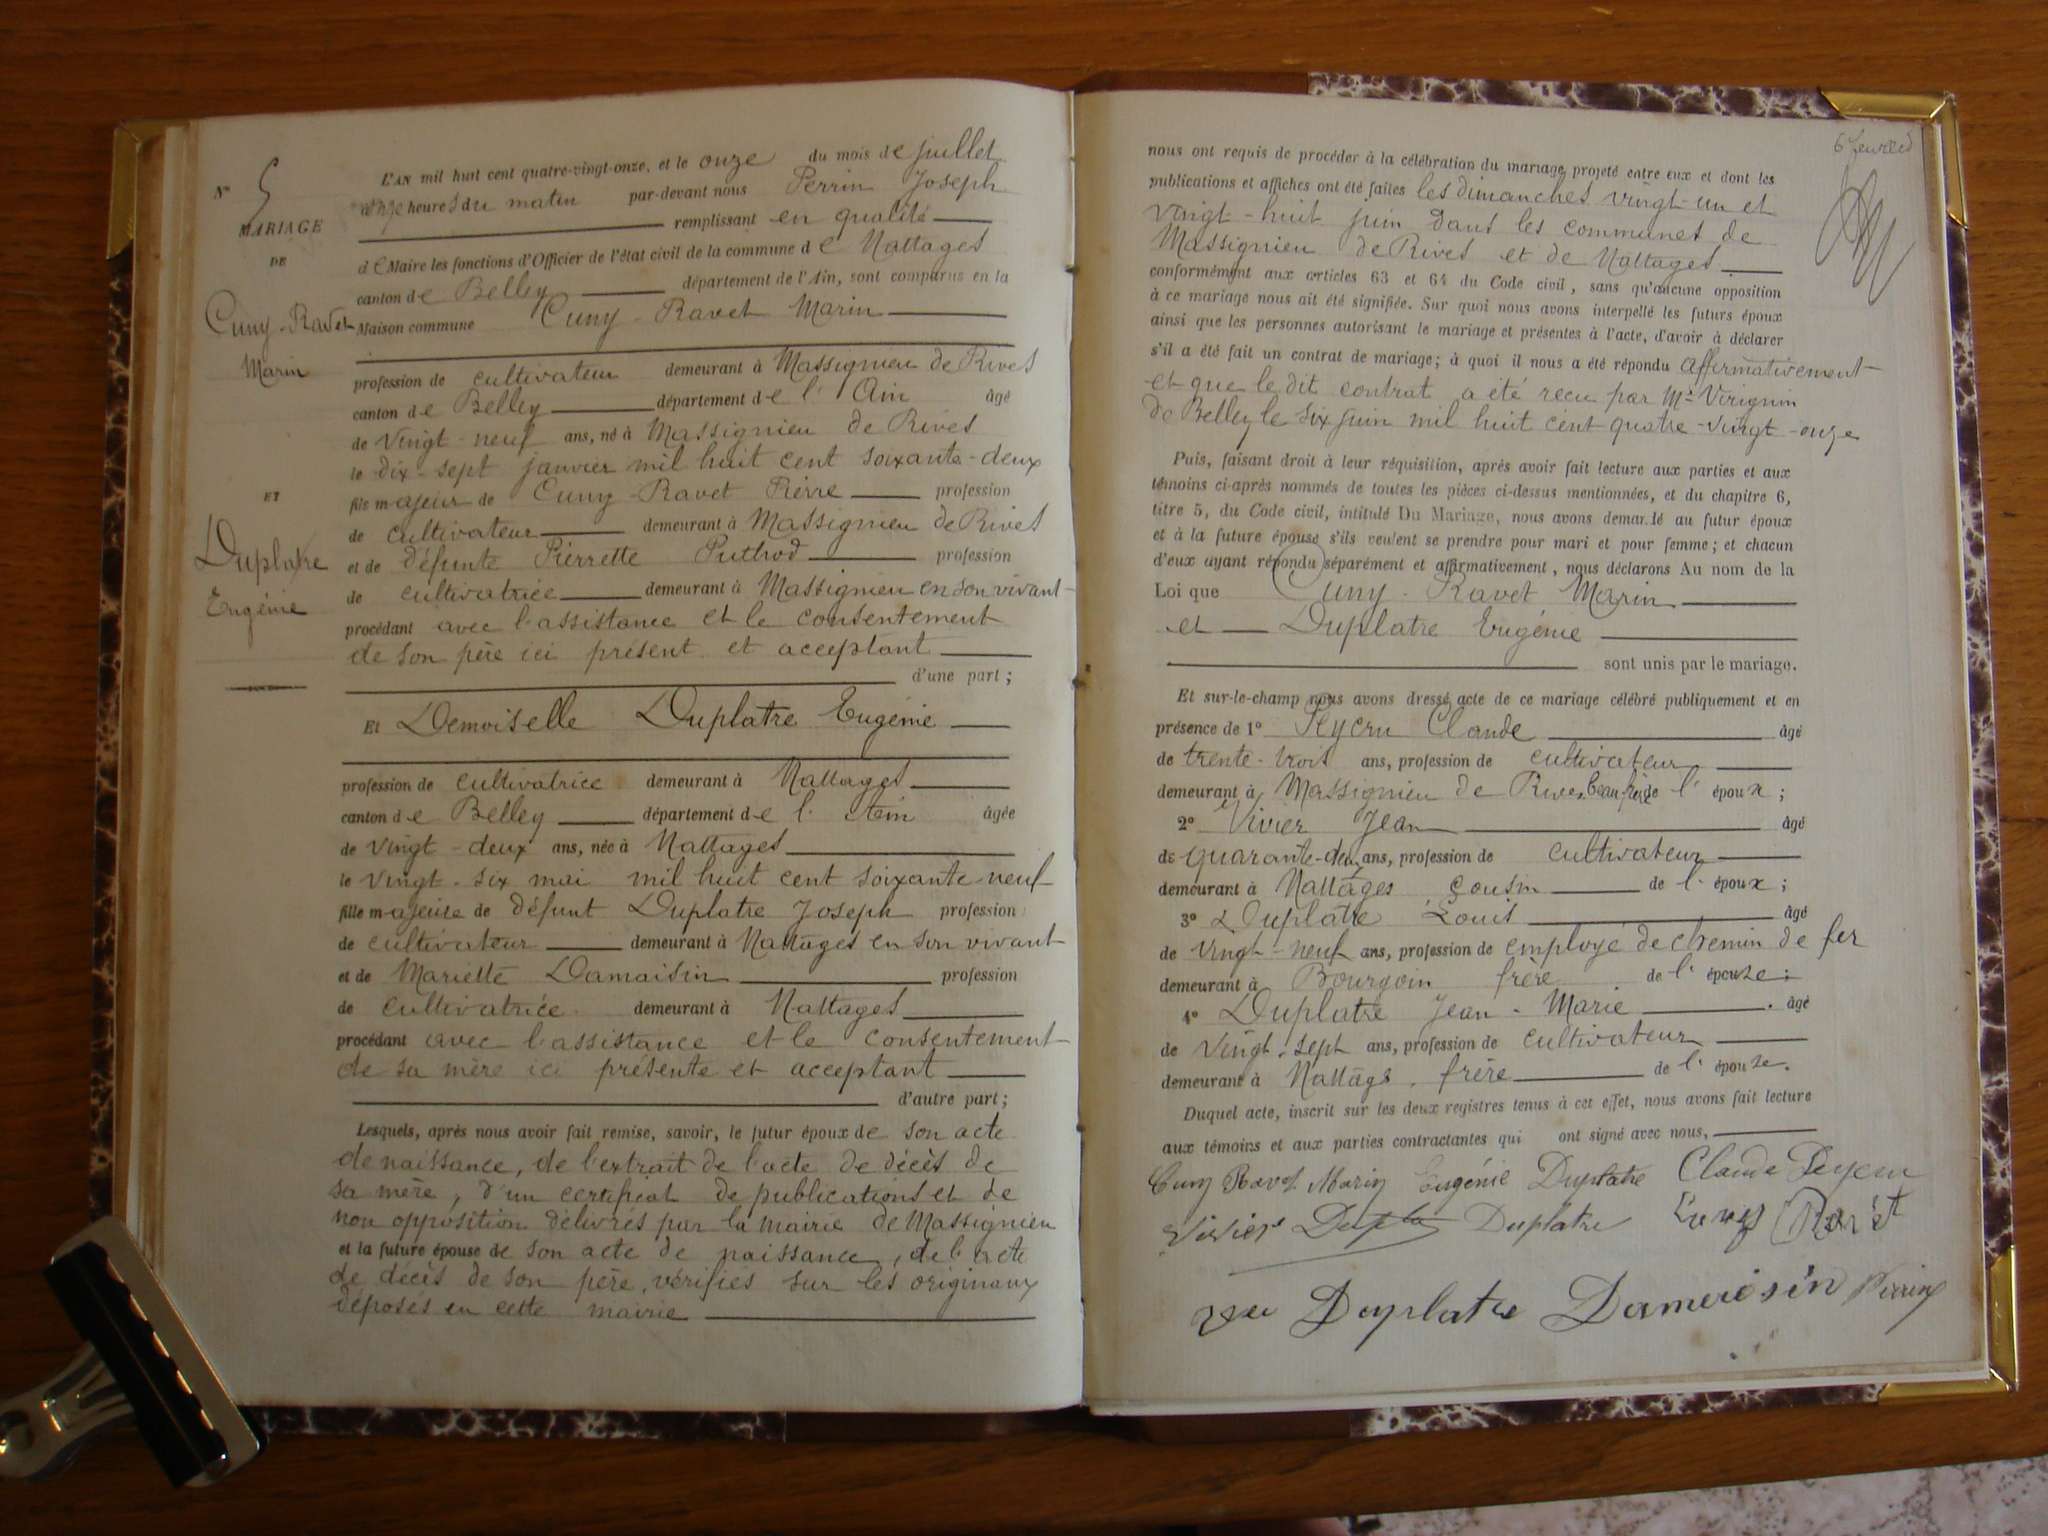 N° 5
MARIAGE
DE
Cuny-Ravet
Marin
ET
Duplatre
Eugénie
L'AN mil huit cent quatre-vingt-onze, et le onze du mois de juillet
à onze heures du matin par-devant nous Perrin Joseph
remplissant en qualité
de Maire les fonctions d'Officier de l'état civil de la commune de Nattages
canton de Belley département de l'Ain, sont comparus en la
Maison commune Cuny-Ravet Marin
profession de cultivateur demeurant à Massignieu de Rives
canton de Belley département de l'Ain âgé
de vingt-neuf ans, né à Massignieu de Rives
le dix-sept janvier mil huit cent soixante-deux
fils majeur de Cuny-Ravet Pierre profession
de cultivateur demeurant à Massignieu de Rives
et de défunte Pierrette Puthod profession
de cultivatrice demeurant à Massignieu en son vivant
procédant avec l'assistance et le consentement
de son père ici présent et acceptant
d'une part ;
Et Demoiselle Duplatre Eugénie
profession de cultivatrice demeurant à Nattages
canton de Belley département de l'Ain âgée
de vingt-deux ans, née à Nattages
le vingt-six mai mil huit cent soixante-neuf
fille majeure de défunt Duplatre Joseph profession
de cultivateur demeurant à Nattages en son vivant
et de Mariette Damaisin profession
de cultivatrice demeurant à Nattages
procédant avec l'assistance et le consentement
de sa mère ici présente et acceptant
d'autre part ;
Lesquels, après nous avoir fait remise, savoir, le futur époux de son acte
de naissance, de l'extrait de l'acte de décès de
sa mère, d'un certificat de publications et de
non opposition délivrés par la mairie de Massignieu
et la future épouse de son acte de naissance, de l'acte
de décès de son père, vérifiés sur les originaux
déposés en cette mairie
nous ont requis de procéder à la célébration du mariage projeté entre eux et dont les
publications et affiches ont été faites les dimanches vingt-un et
vingt-huit juin dans les communes de
Massignieu de Rives et de Nattages
conformément aux articles 63 et 64 du Code civil, sans qu'aucune opposition
à ce mariage nous ait été signifiée. Sur quoi nous avons interpellé les futurs époux
ainsi que les personnes autorisant le mariage et présentes à l'acte, d'avoir à déclarer
s'il a été fait un contrat de mariage ; à quoi il nous a été répondu affirmativement
et que le dit contrat a été recu par Me Virignin
de Belley le six juin mil huit cent quatre-vingt-onze
Puis, faisant droit à leur réquisition, après avoir fait lecture aux parties et aux
témoins ci-après nommés de toutes les pièces ci-dessus mentionnées, et du chapitre 6,
titre 5, du Code civil, intitulé Du Mariage, nous avons demandé au futur époux
et à la future épouse s'ils veulent se prendre pour mari et pour femme ; et chacun
d'eux ayant répondu séparément et affirmativement, nous déclarons Au nom de la
Loi que Cuny-Ravet Marin
et Duplatre Eugénie
sont unis par le mariage.
Et sur-le-champ nous avons dressé acte de ce mariage célébré publiquement et en
présence de 1° Peycru Claude âgé
de trente-trois ans, profession de cultivateur
demeurant à Massignieu de Rives, beau-frère de l'époux ;
2° Vivier Jean âgé
de quarante-deux ans, profession de cultivateur
demeurant à Nattages cousin de l'époux ;
3° Duplatre Louis âgé
de vingt-neuf ans, profession de employé de chemin de fer
demeurant à Bourgoin frère de l'épouse ;
4° Duplatre Jean-Marie âgé
de vingt-sept ans, profession de cultivateur
demeurant à Nattags. frère de l'épouse.
Duquel acte, inscrit sur les deux registres tenus à cet effet, nous avons fait lecture
aux témoins et aux parties contractantes qui ont signé avec nous,
Cuny Ravet Marin Eugénie Duplatre Claude Peycru
Vivier Duplatre Cuny Ravet
Duplatre Dameisin Perrin